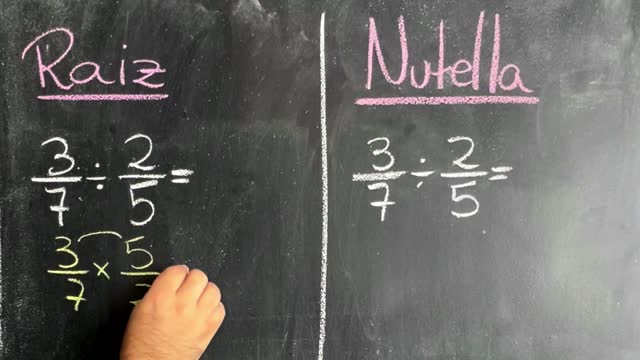 Raiz
3/7 ÷ 2/5 =
3/7 × 5/
Nutella
3/7 ÷ 2/5 =